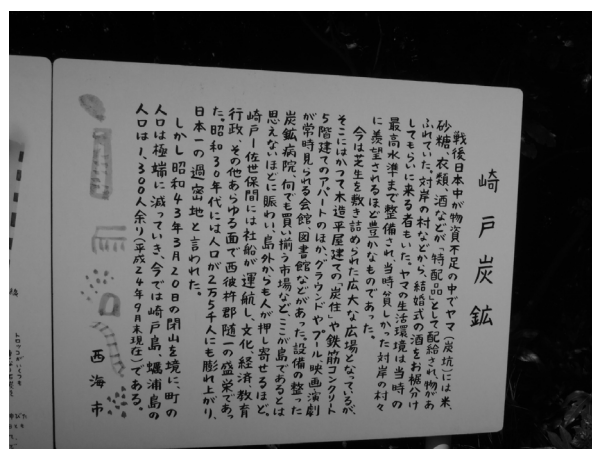 崎戸炭鉱
戦後日本中が物資不足の中でヤマ(炭坑)には米、
砂糖、衣類、酒などが「特配品」として配給され、物があ
ふれていた。対岸の村などから、結婚式の酒をお裾分け
してもらいに来る者もいた。ヤマの生活環境は当時の
最高水準まで整備され、当時貧しかった対岸の村々
に羨望されるほど豊かなものであった。
今は芝生を敷き詰められた広大な広場となっているが、
そこにはかつて木造平屋建ての「炭住」や鉄筋コンクリート
5階建てのアパートのほか、グラウンドやプール、映画演劇
が常時見られる会館、図書館などがあった。設備の整った
炭鉱病院、何でも買い揃う市場など、ここが島であるとは
思えないほどに賑わい、島外からも人が押し寄せるほど。
崎戸ー佐世保間には社船が運航し、文化、経済、教育
行政、その他あらゆる面で西彼杵郡随一の盛栄であっ
た。昭和30年代には人口が2万5千人にも膨れ上がり、
日本一の過密地と言われた。
しかし昭和43年3月20日の閉山を境に、町の
人口は極端に減っていき、今では崎戸島、蠣浦島の
人口は1,300人余り(平成24年9月末現在)である。
西海市
トロッコがいくつも